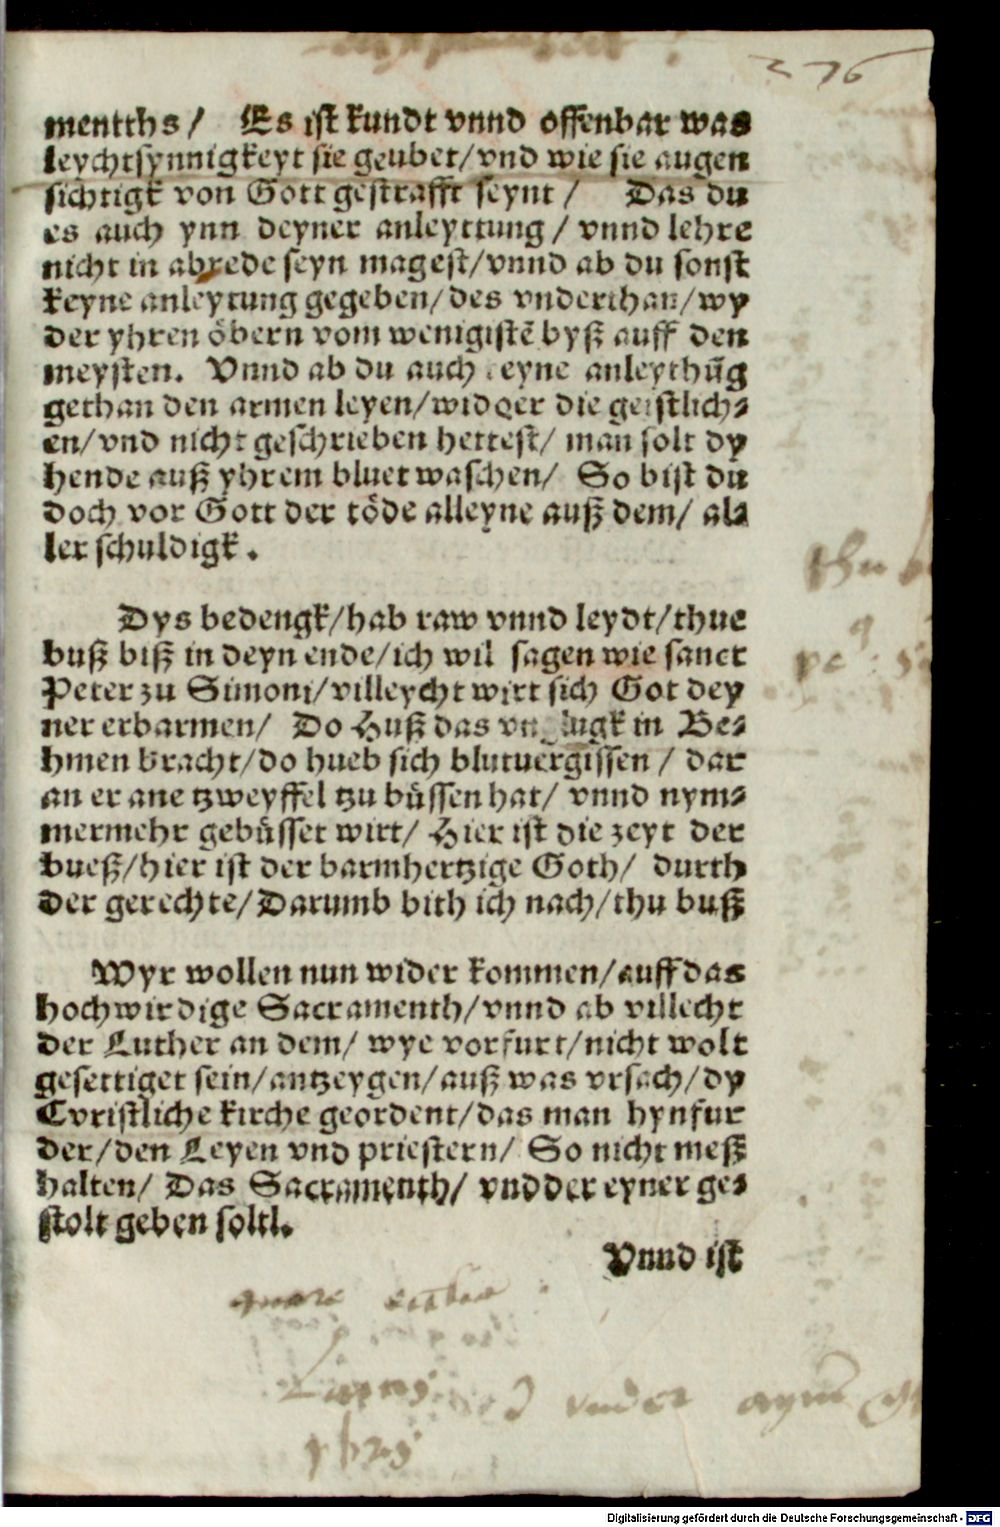 276
mentths/ Es ist kundt vnnd offenbar was
leychtsynnigkeyt sie geubet/vnd wie sie augen
sichtigk von Gott gestrafft seynt / Das du
es auch ynn deyner anleyttung / vnnd lehre
nicht in abrede seyn magest/vnnd ab du sonst
keyne anleytung gegeben/des vnderthan/wy
der yhren öbern vom wenigistē byß auff den
meysten. Vnnd ab du auch keyne anleythūg
gethan den armen leyen/widder die geistlich⸗
en/vnd nicht geschrieben hettest/ man solt dy
hende auß yhrem bluet waschen/ So bist du
doch vor Gott der töde alleyne auß dem/ al⸗
ler schuldigk.
Dys bedengk/hab raw vnnd leydt/thue
buß biß in deyn ende/ich wil sagen wie sanct
Peter zu Simoni/villeycht wirt sich Got dey
ner erbarmen/ Do Huß das vnglugk in Be⸗
hmen bracht/do hueb sich blutuergissen / dar
an er ane tzweyffel tzu büssen hat/ vnnd nym⸗
mermehr gebüsset wirt/ Hier ist die zeyt der
bueß/hier ist der barmhertzige Goth/ durth
der gerechte/Darumb bith ich nach/thu buß
Wyr wollen nun wider kommen/auff das
hochwirdige Sacramenth/vnnd ab villecht
der Luther an dem/ wye vorfurt/nicht wolt
gesettiget sein/antzeygen/auß was vrsach/dy
Cvristliche kirche geordent/das man hynfur
der/den Leyen vnd priestern/ So nicht meß
halten/ Das Sacramenth/ vndder eyner ge⸗
stolt geben soltl.
Vnnd ist
thu
vnder
Digitalisierung gefördert durch die Deutsche Forschungsgemeinschaft - DFG